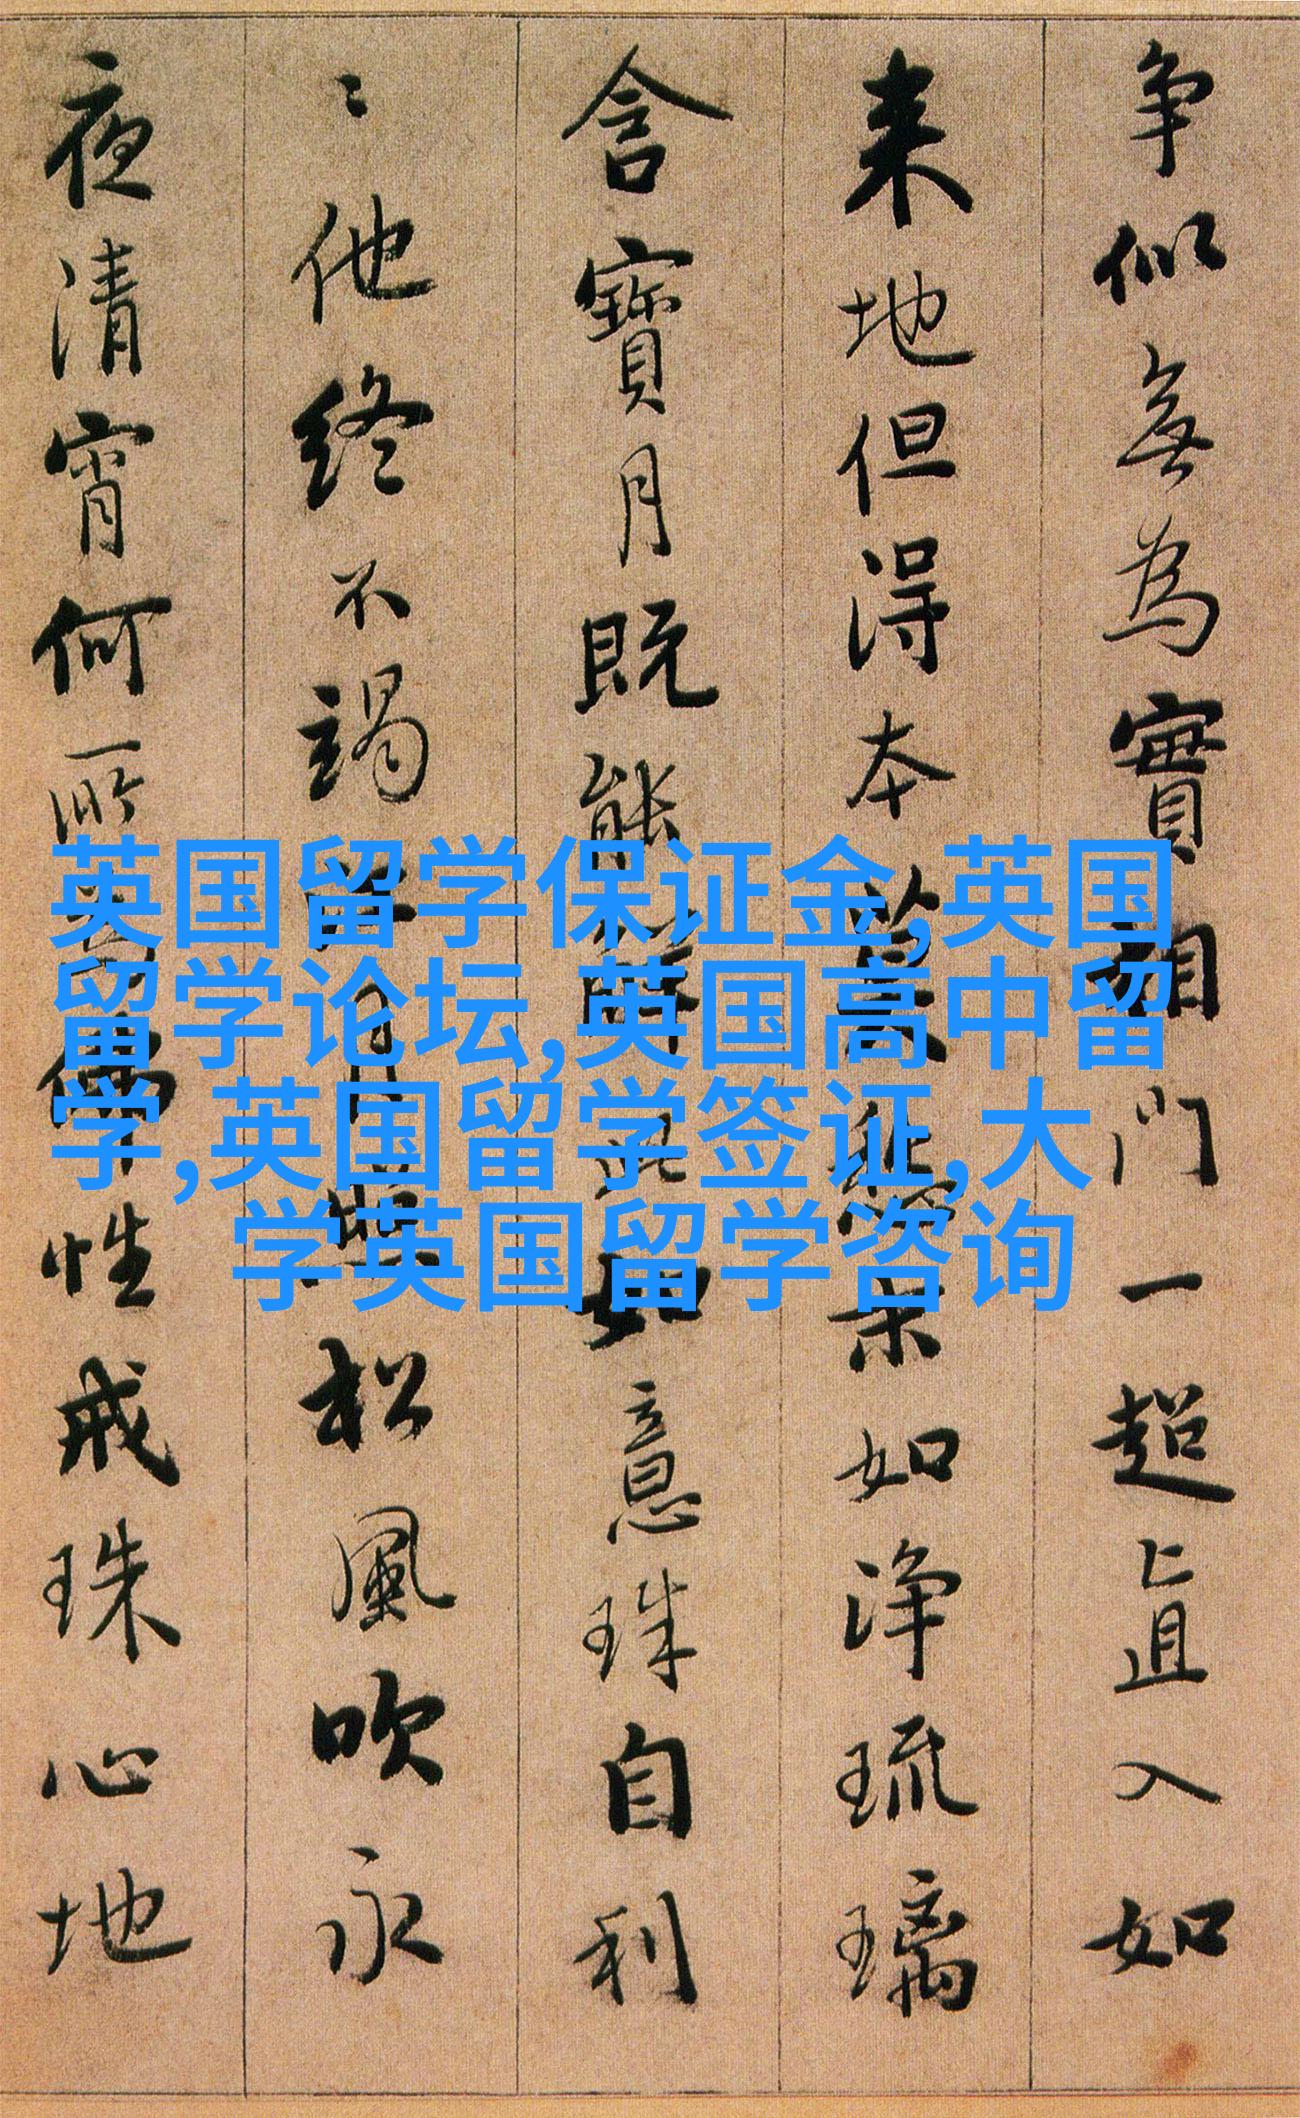 英国留学保证金,英国
留学论坛,英国高中留
学,英国留学签证,大
学英国留学咨询
争似無為實相門一超直入如
来地但得本莫愁末如浄琉璃
含寶月既能解此如意珠自利
〻他終不竭江月照松風吹永
夜清宵何所為佛性戒珠心地